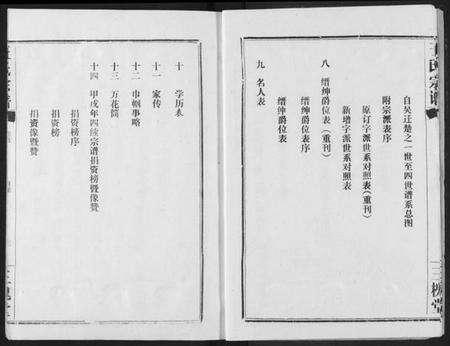 自吴迁楚之一世至四世谱系总图
附宗派表序
原订字派世系对照表(重刊)
新增字派世系对照表
八 缙绅爵位表(重刊)
缙绅爵位表序
缙绅爵位表
九 名人表
十 学历表
十一 家传
十二 巾帼事略
十三 万花筒
十四 甲戌年四续宗谱捐资榜暨像赞
捐资榜序
捐资榜
捐资像暨赞
氏宗谱
三槐堂